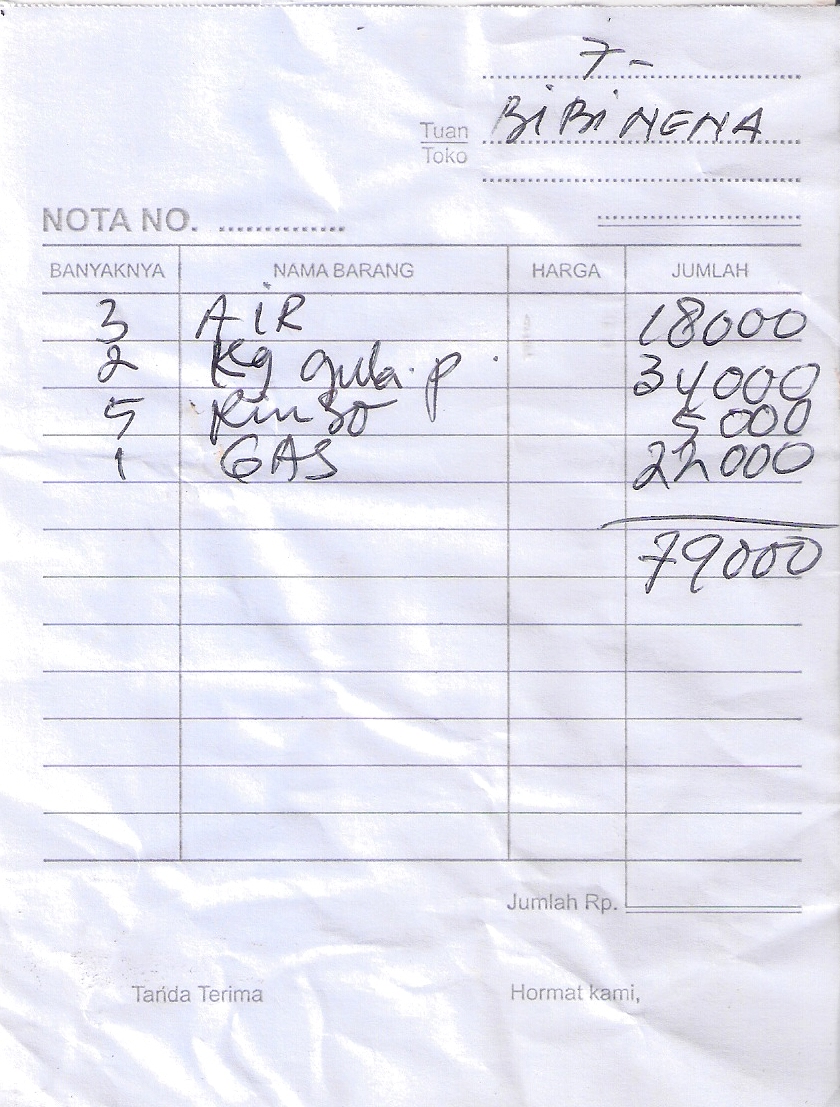 7-
Tuan BiBi NENA
Toko
NOTA NO. ....................
BANYAKNYA NAMA BARANG HARGA JUMLAH
3 AIR 18000
2 Kg gula p. 34000
5 Rinso 5000
1 GAS 22000
79000
Jumlah Rp.
Tanda Terima Hormat kami,